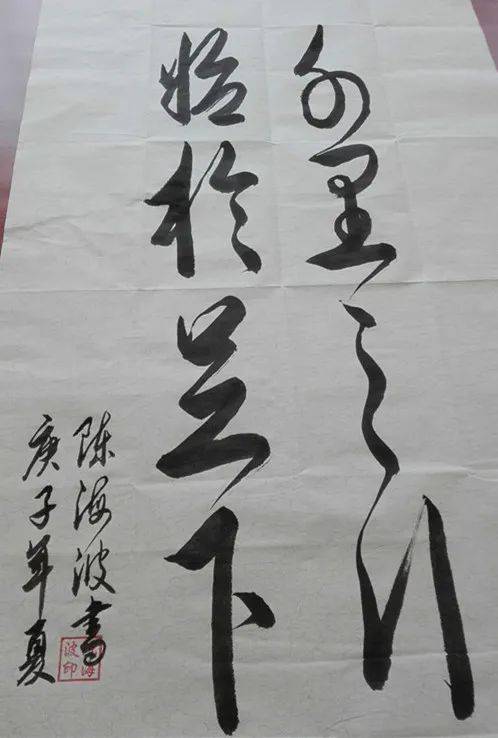 千里之行
始於足下
陈海波書
庚子年夏
海
波印